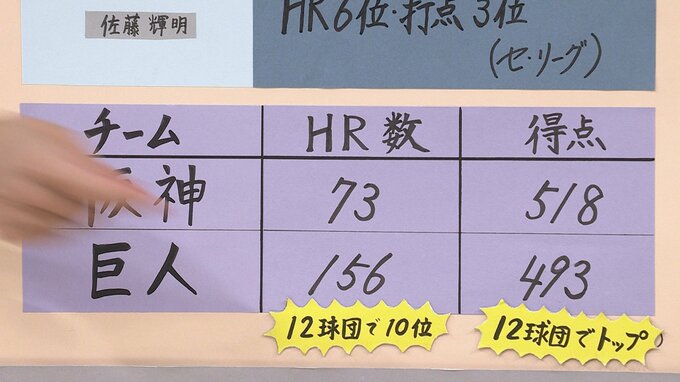 佐藤輝明
HR6位・打点3位
(セ・リーグ)
チーム HR数 得点
阪神 73 518
巨人 156 493
12球団で10位
12球団でトップ